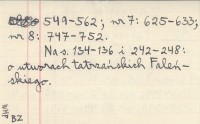 549-562; nr 7: 625-633;
nr 8: 747-752.
Na s. 134-136 i 242-248:
o utworach tatrzańskich Faleń-
skiego.
BZ